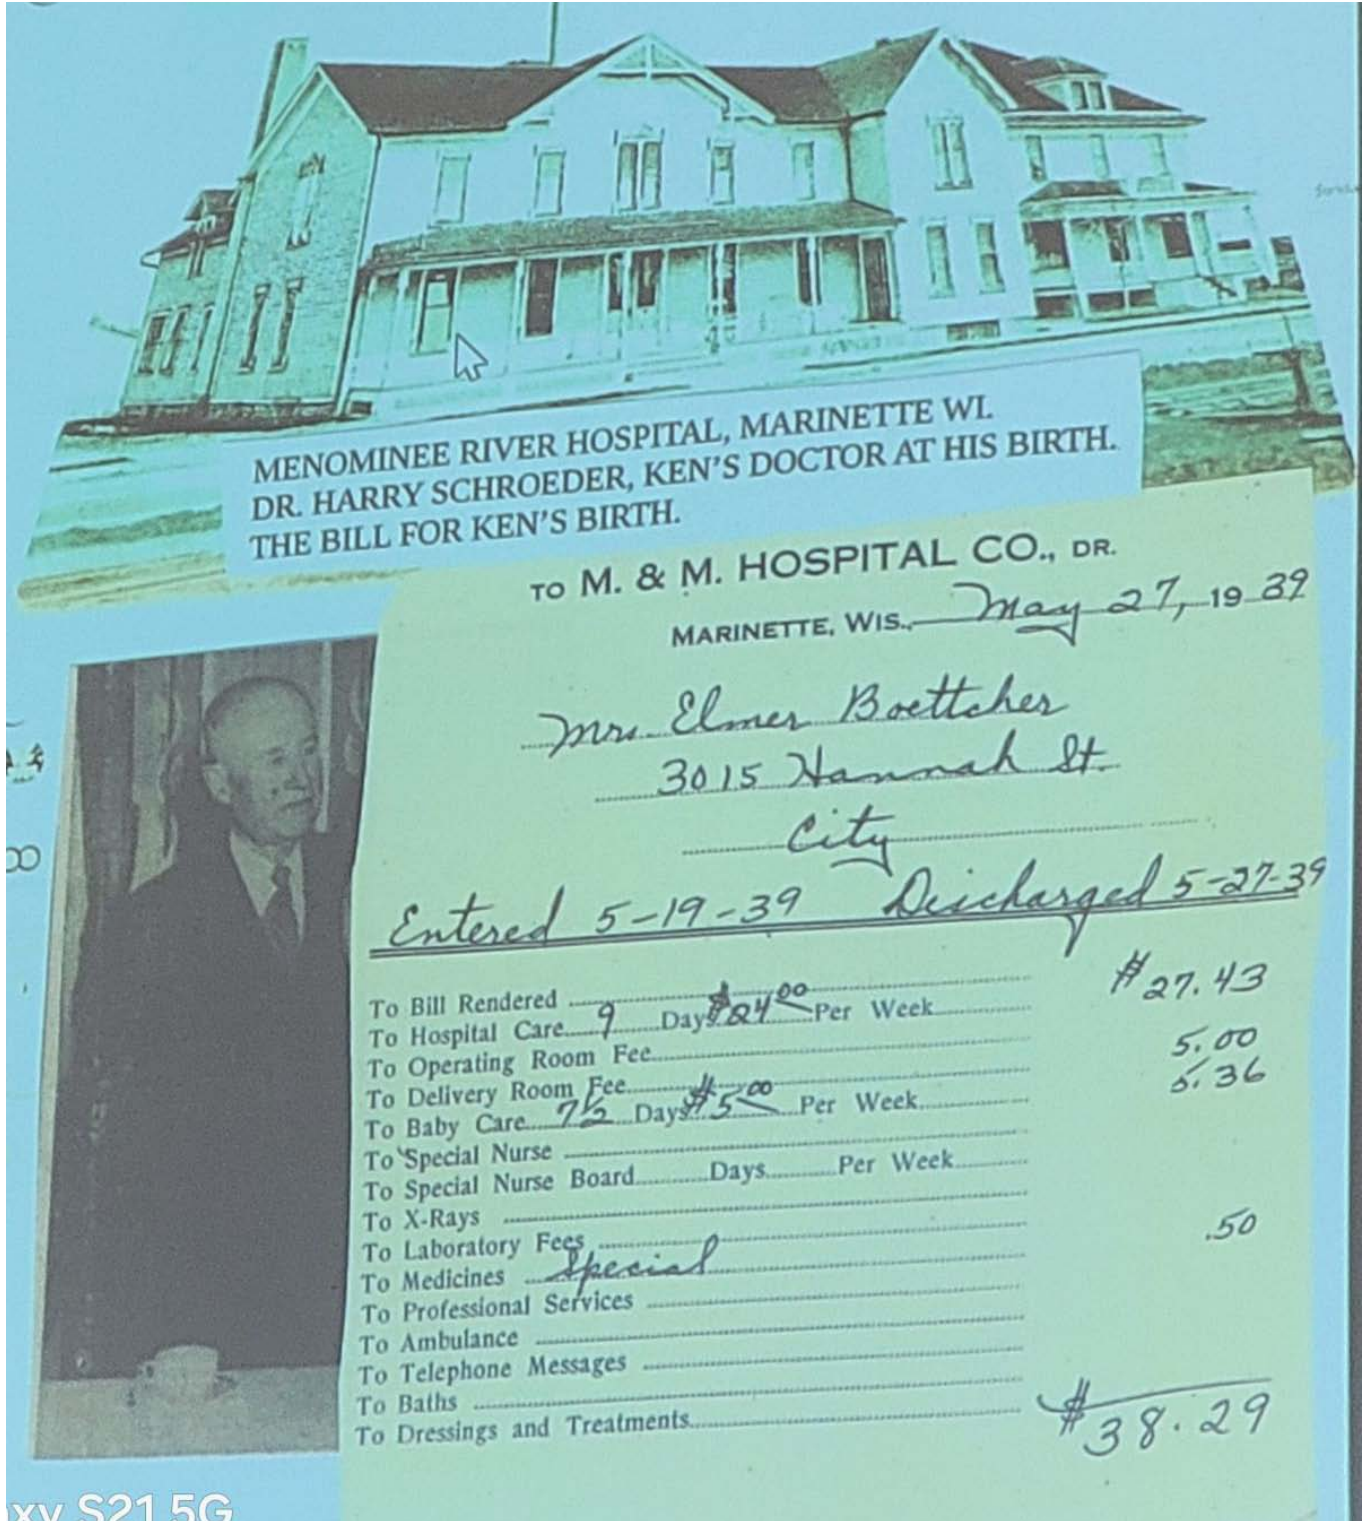 MENOMINEE RIVER HOSPITAL, MARINETTE WI.
DR. HARRY SCHROEDER, KEN'S DOCTOR AT HIS BIRTH.
THE BILL FOR KEN'S BIRTH.
TO M. & M. HOSPITAL CO., DR.
MARINETTE, WIS., May 27, 1939
Mrs. Elmer Boettcher
3015 Hannah St.
City
Entered 5-19-39 Discharged 5-27-39
To Bill Rendered
To Hospital Care 9 Days $24.00 Per Week $27.43
To Operating Room Fee
To Delivery Room Fee 5.00
To Baby Care 7½ Days $5.00 Per Week 5.36
To Special Nurse
To Special Nurse Board Days Per Week
To X-Rays
To Laboratory Fees
To Medicines Special .50
To Professional Services
To Ambulance
To Telephone Messages
To Baths
To Dressings and Treatments
$38.29
S21 5G